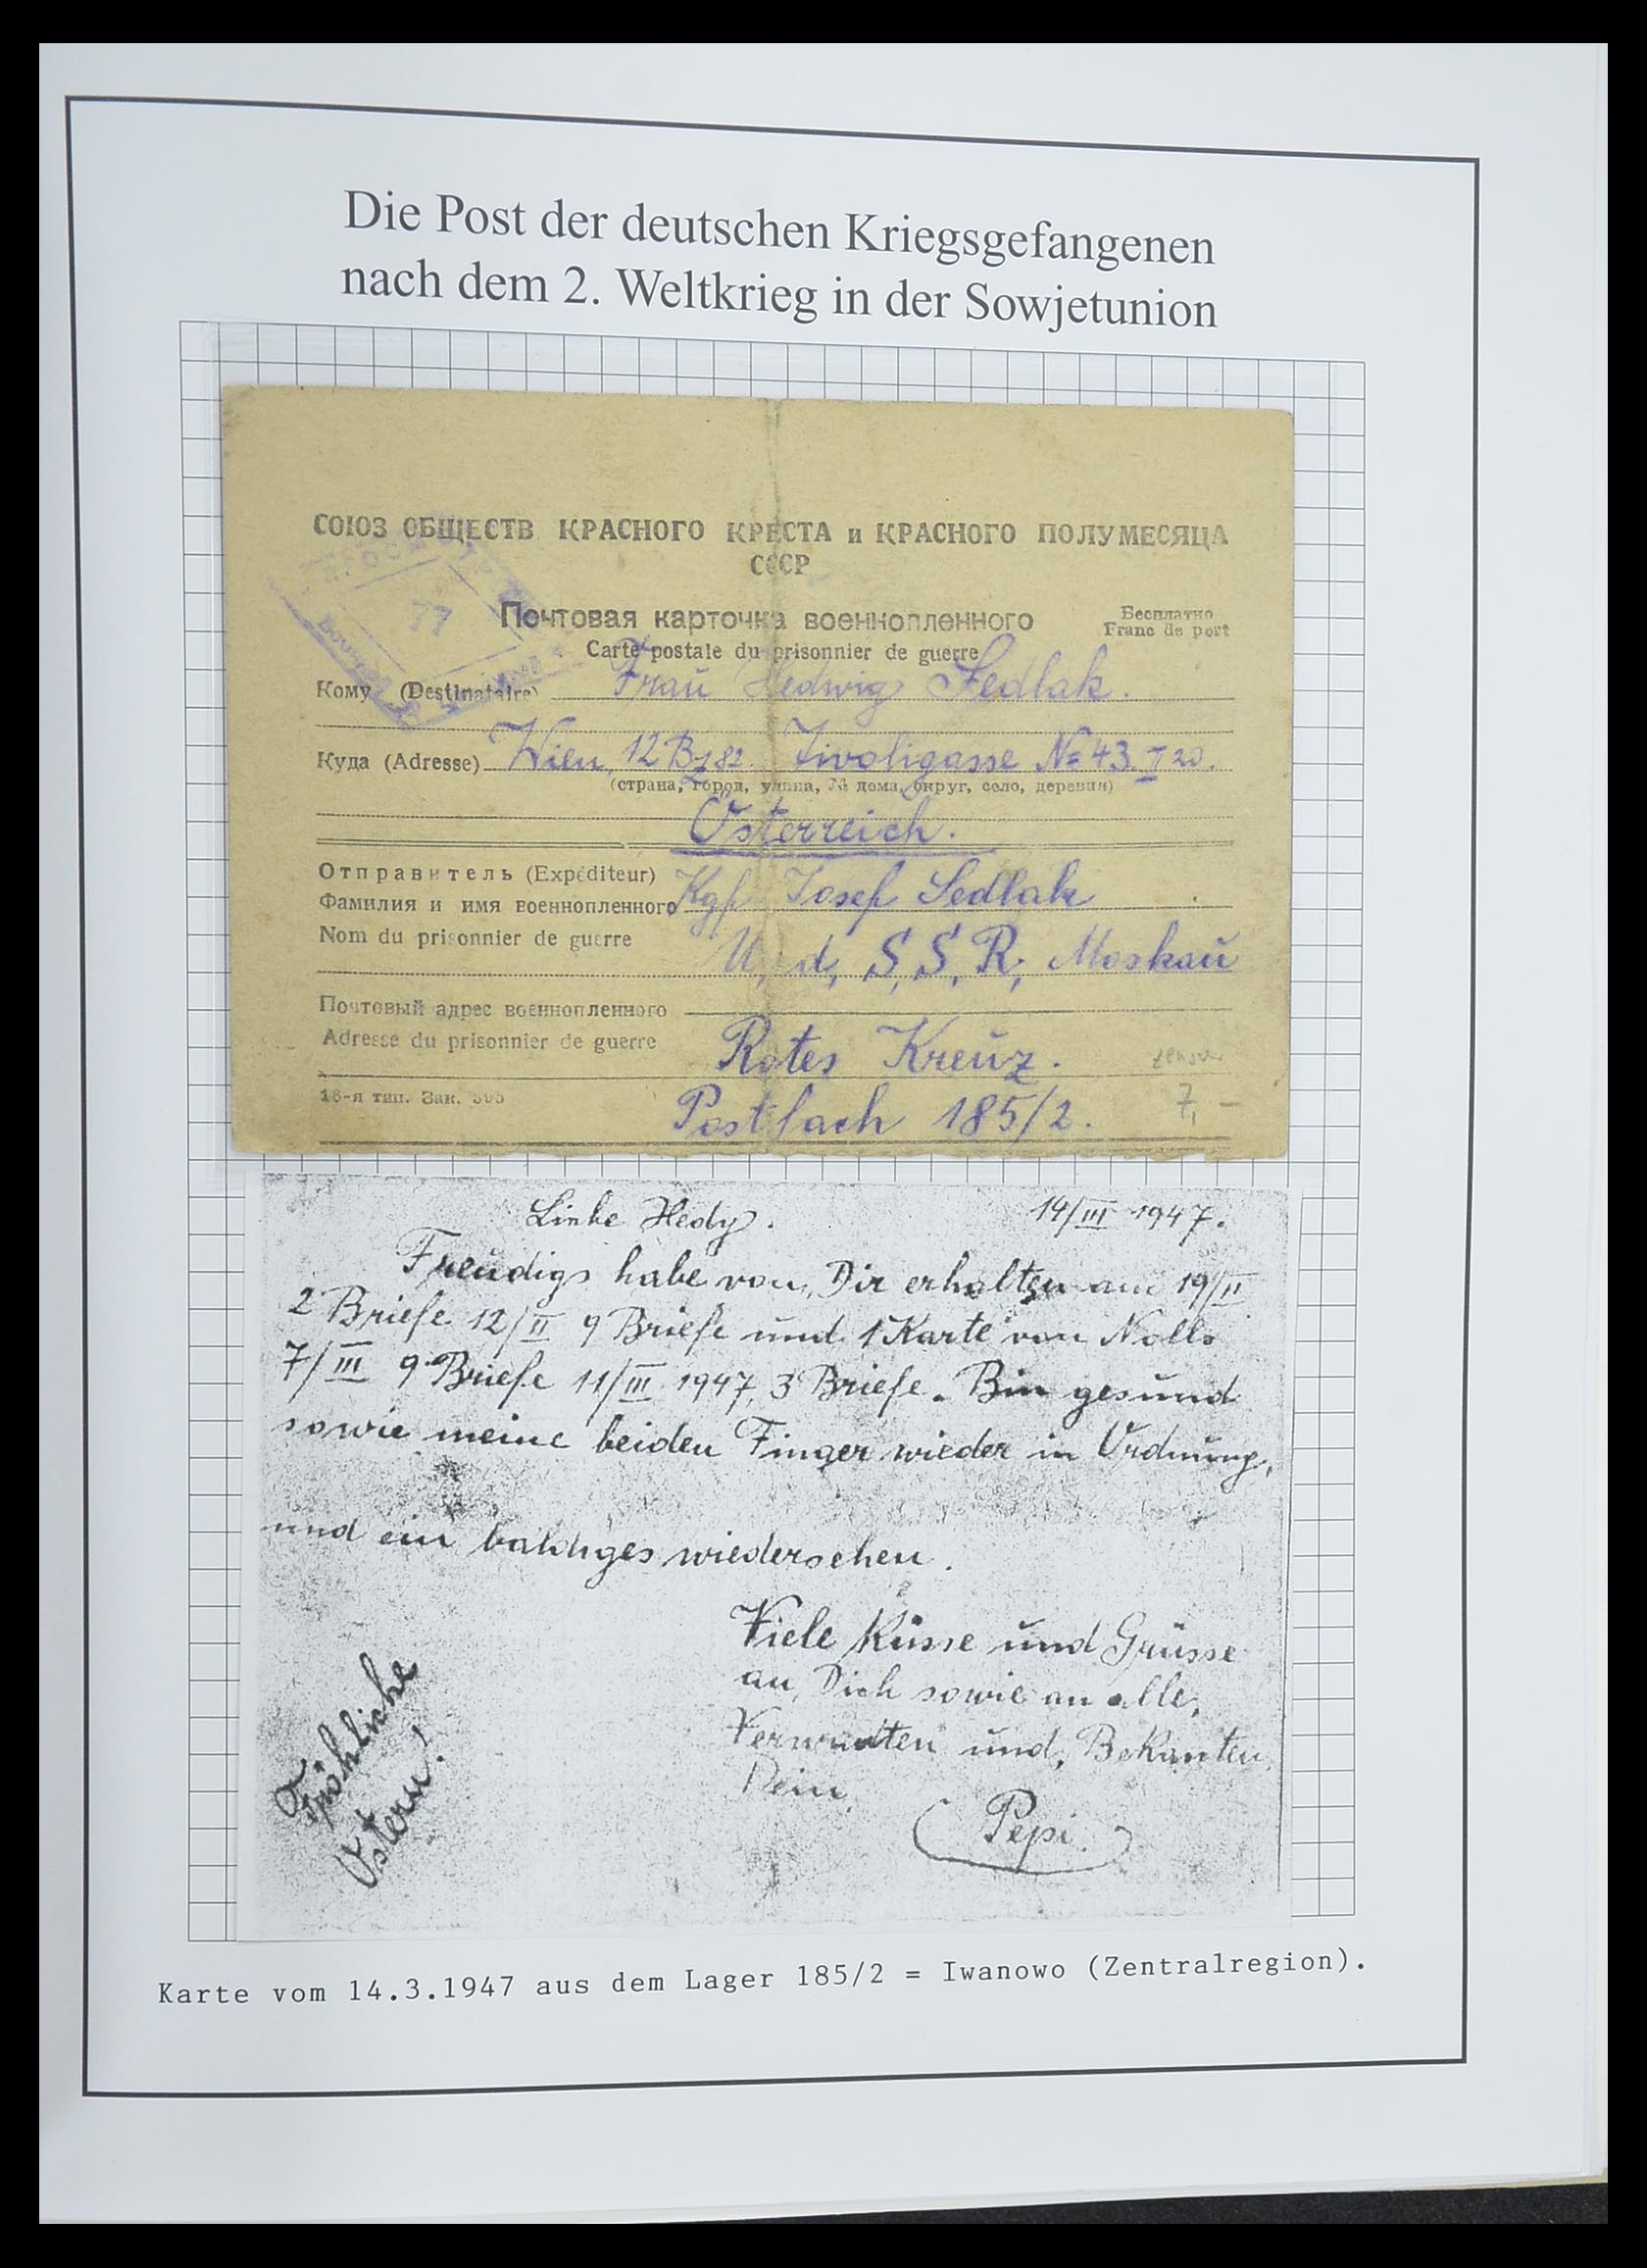 Die Post der deutschen Kriegsgefangenen
nach dem 2. Weltkrieg in der Sowjetunion
СОЮЗ ОБЩЕСТВ КРАСНОГО КРЕСТА и КРАСНОГО ПОЛУМЕСЯЦА
СССР
Почтовая карточка военнопленного
Бесплатно
Franc de port
Carte postale du prisonnier de guerre
Кому (Destinataire) Frau Hedwig Sedlak.
Куда (Adresse) Wien, 12 Bz 82. Tivoligasse № 43. I 20.
(страна, город, улица, № дома, округ, село, деревня)
Österreich.
Отправитель (Expéditeur)
Фамилия и имя военнопленного Kgf Josef Sedlak
Nom du prisonnier de guerre
U, d, S, S, R, Moskau
Почтовый адрес военнопленного
Adresse du prisonnier de guerre
Rotes Kreuz.
16-я тип. Зак. 395
Postfach 185/2.
7,-
Liebe Hedy.
14/III 1947.
Freudigs habe von, Dir erhalten am 19/II
2 Briefe 12/II 9 Briefe und 1 Karte von Nolls
7/III 9 Briefe 11/III 1947, 3 Briefe. Bin gesund
sowie meine beiden Finger wieder in Ordnung,
und ein baldiges wiedersehen.
Viele Küsse und Grüsse
an, Dich sowie an alle,
Verwandten und, Bekanten,
Dein,
Pepi.
Fröhliche
Ostern!
Karte vom 14.3.1947 aus dem Lager 185/2 = Iwanowo (Zentralregion).